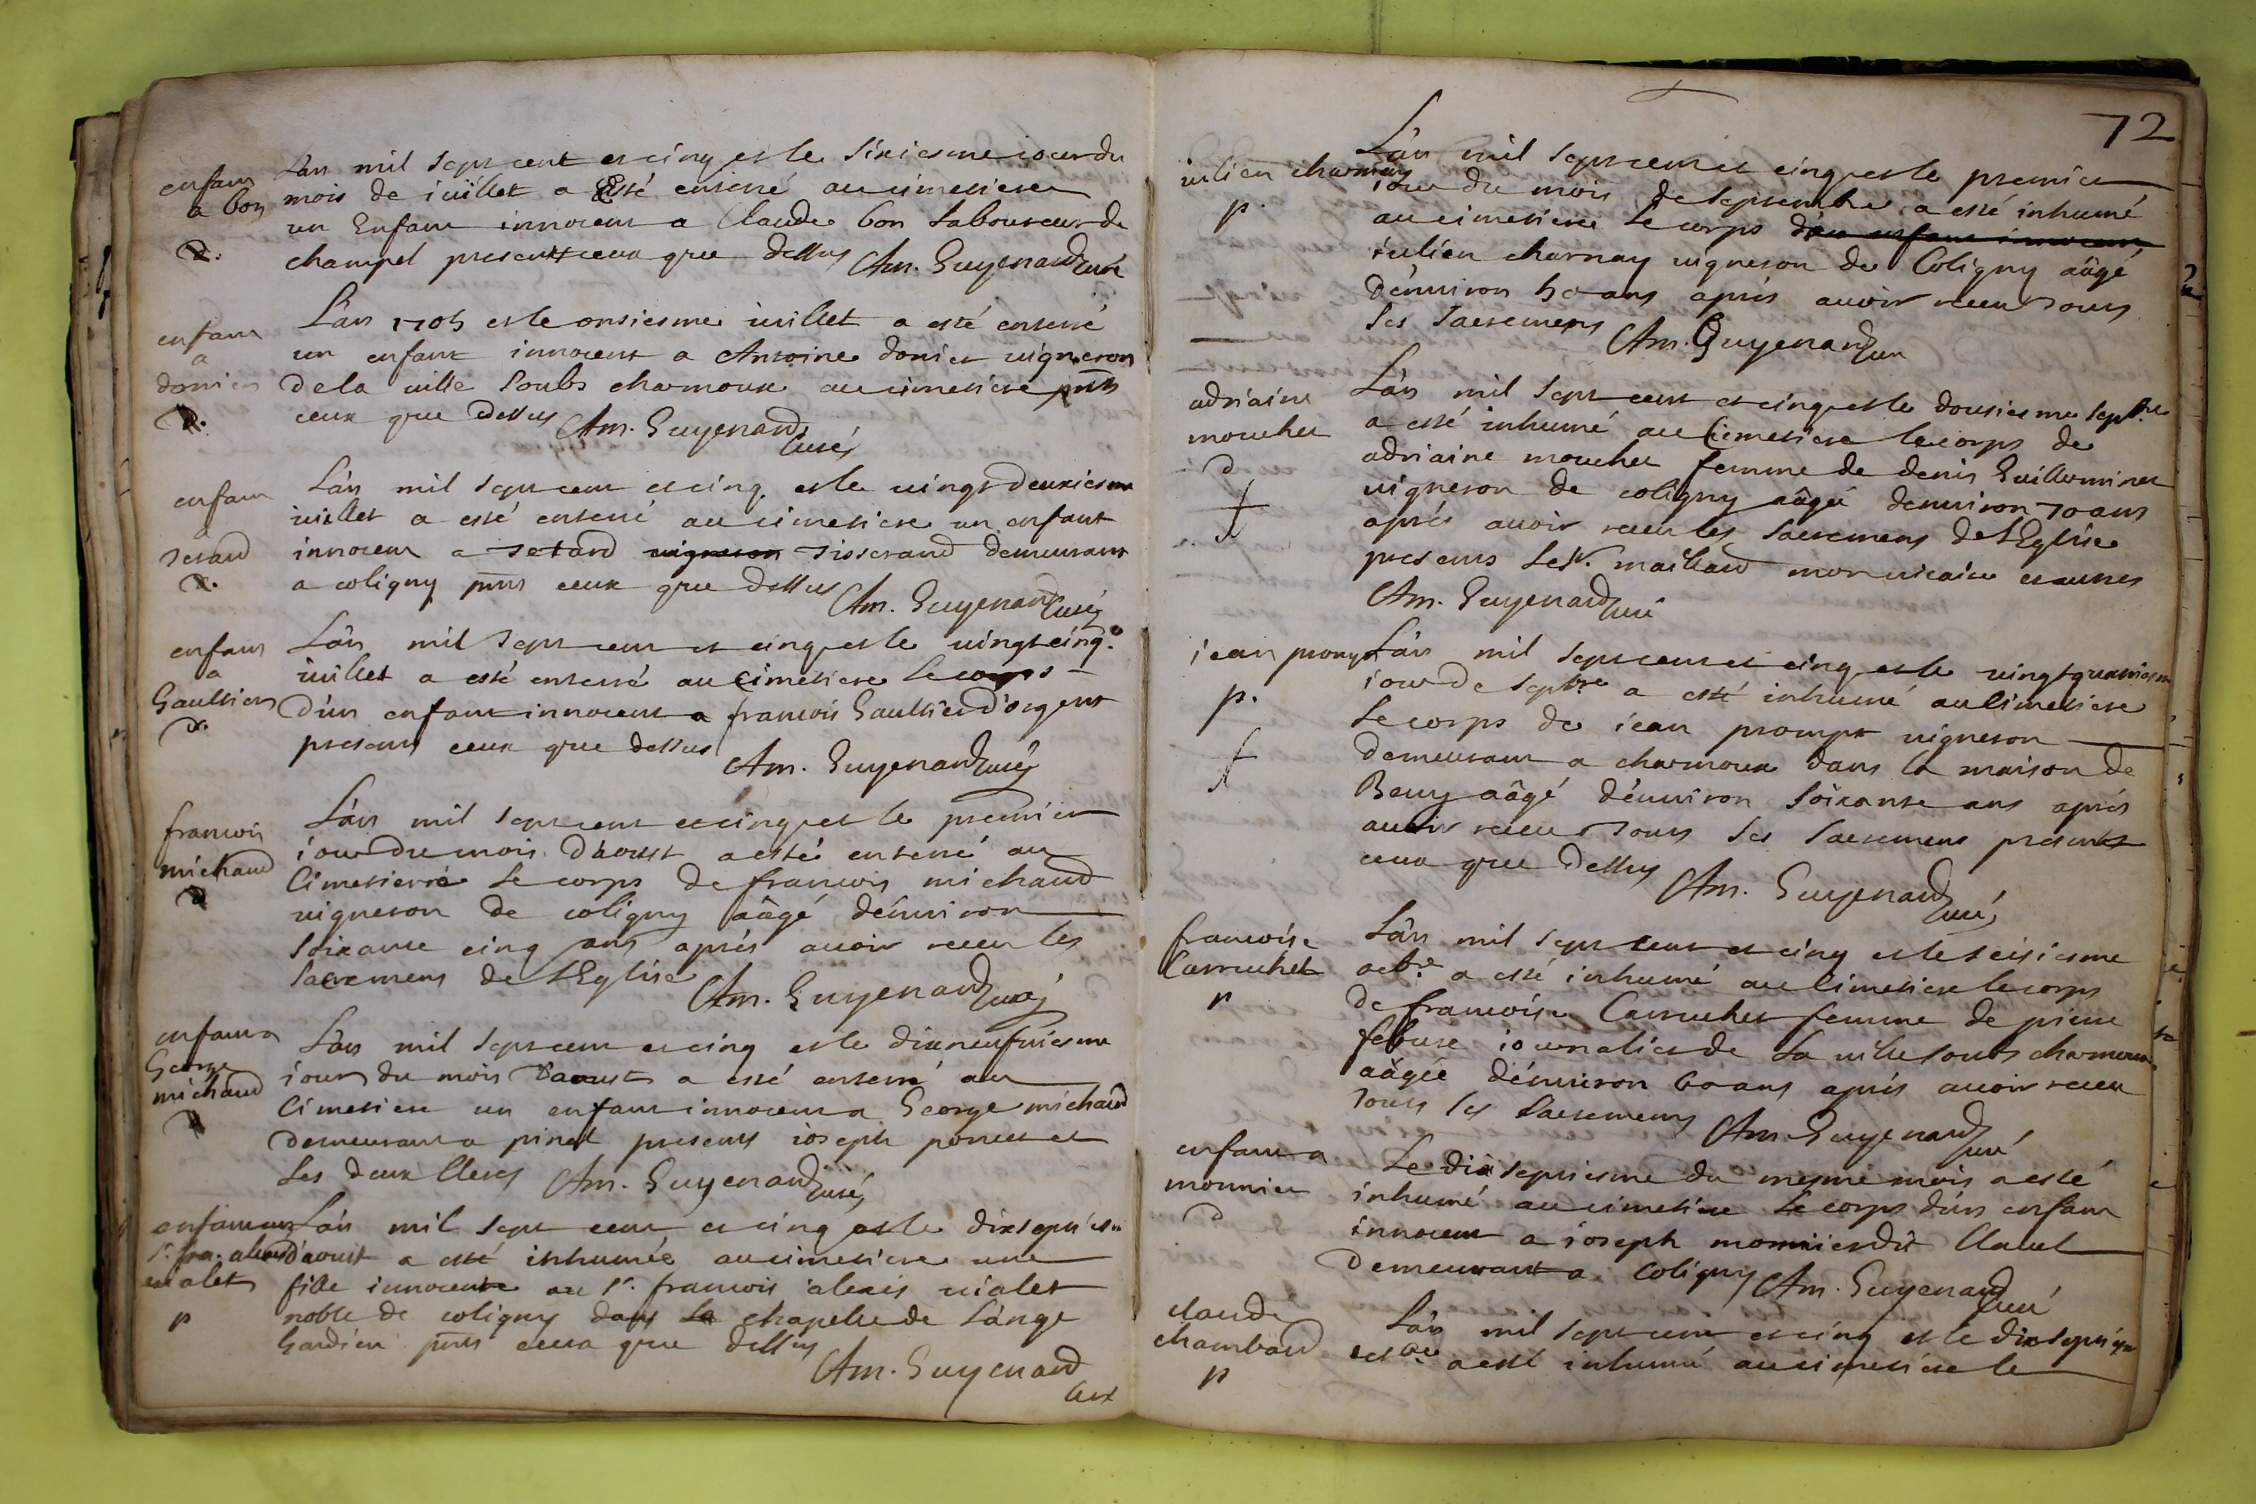 enfant
a bon
d.
Lan mil sept cent et cinq et le sixiesme jour du
mois de iuillet a esté enterré au cimetiere
un Enfant innocent a Claude bon laboureur de
champel present ceux que dessus Am. Guyenard curé
enfant
a
donier
d.
L'an 1705 et le onsiesme iuillet a esté enterré
un enfant innocent a Antoine donier uigneron
de la uille soubs charmoux au cimetiere pnts
ceux que dessus Am. Guyenard
curé
enfant
a
tetard
d.
L'an mil sept cent et cinq et le uingt deuxiesme
iuillet a esté enterré au cimetiere un enfant
innocent a tetard uigneron tisserand demeurant
a coligny pnts ceux que dessus Am. Guyenard curé
enfant
a
Gaultier
d.
L'an mil sept cent et cinq et le uingt cinq.e
iuillet a esté enterré au Cimetiere le corps
d'un enfant innocent a francois Gaultier d'orgent
presents ceux que dessus Am. Guyenard curé
francois
michaud
d
L'an mil sept cent et cinq et le premier
iour du mois d'aoust a esté enterré au
Cimetierre le corps de francois michaud
uigneron de coligny aâgé d'enuiron
soixante cinq ans aprés auoir receu les
sacremens de l'Eglise Am. Guyenard curé
enfant a
George
michaud
d
L'an mil sept cent et cinq et le dixneufuiesme
iour du mois d'aoust a esté enterré au
Cimetiere un enfant innocent a George michaud
demeurant a pinel presents ioseph poncet et
les deux Clercs Am. Guyenard curé
enfant au
sr. fra. alexis
uialet
p
L'an mil sept cent et cinq et le dixseptiesme
d'aoust a esté inhumée au cimetiere une
fille innocente au sr. francois alexis uialet
noble de coligny dans la chapelle de L'ange
Gardien pnts ceux que dessus
Am. Guyenard
curé
72
iulien charnay
p.
L'an mil sept cent et cinq et le premier
iour du mois de septembre a esté inhumé
au cimetiere le corps d'un enfant innocent
iulien charnay uigneron de Coligny aâgé
d'enuiron 50 ans aprés auoir receu tous
ses sacremens Am. Guyenard curé
adriaine
mouchet
d
L'an mil sept cent et cinq et le dousiesme septbre
a esté inhumé au Cimetiere le corps de
adriaine mouchet femme de denis Guilleminet
uigneron de coligny aâgée denuiron 70 ans
aprés auoir receu les sacremens de l'Eglise
presents le sr. maillard mon uicaire et autres
Am. Guyenard curé
iean prompt
p.
L'an mil sept cent et cinq et le uingt quatriesme
iour de septbre a esté inhumé au Cimetiere
le corps de iean prompt uigneron
demeurant a charmoux dans la maison de
Beuy aâgé d'enuiron soixante ans aprés
auoir receu tous ses sacremens presents
ceux que dessus Am. Guyenard
curé
francoise
Carruchet
p
L'an mil sept cent et cinq et le seisiesme
octbre a esté inhumé au Cimetiere le corps
de francoise Carruchet femme de pierre
febure iournalier de la uille soubs charmoux
aâgée d'enuiron 60 ans aprés auoir receu
tous ses sacremens Am. Guyenard
curé
enfant a
monnier
d
Le dix septiesme du mesme mois a esté
inhumé au cimetiere le corps d'un enfant
innocent a ioseph monnier dit Clavel
demeurant a Coligny Am. Guyenard
curé
claude
chambard
p
L'an mil sept cent et cinq et le dixseptiesme
octbre a esté inhumé au cimetiere le